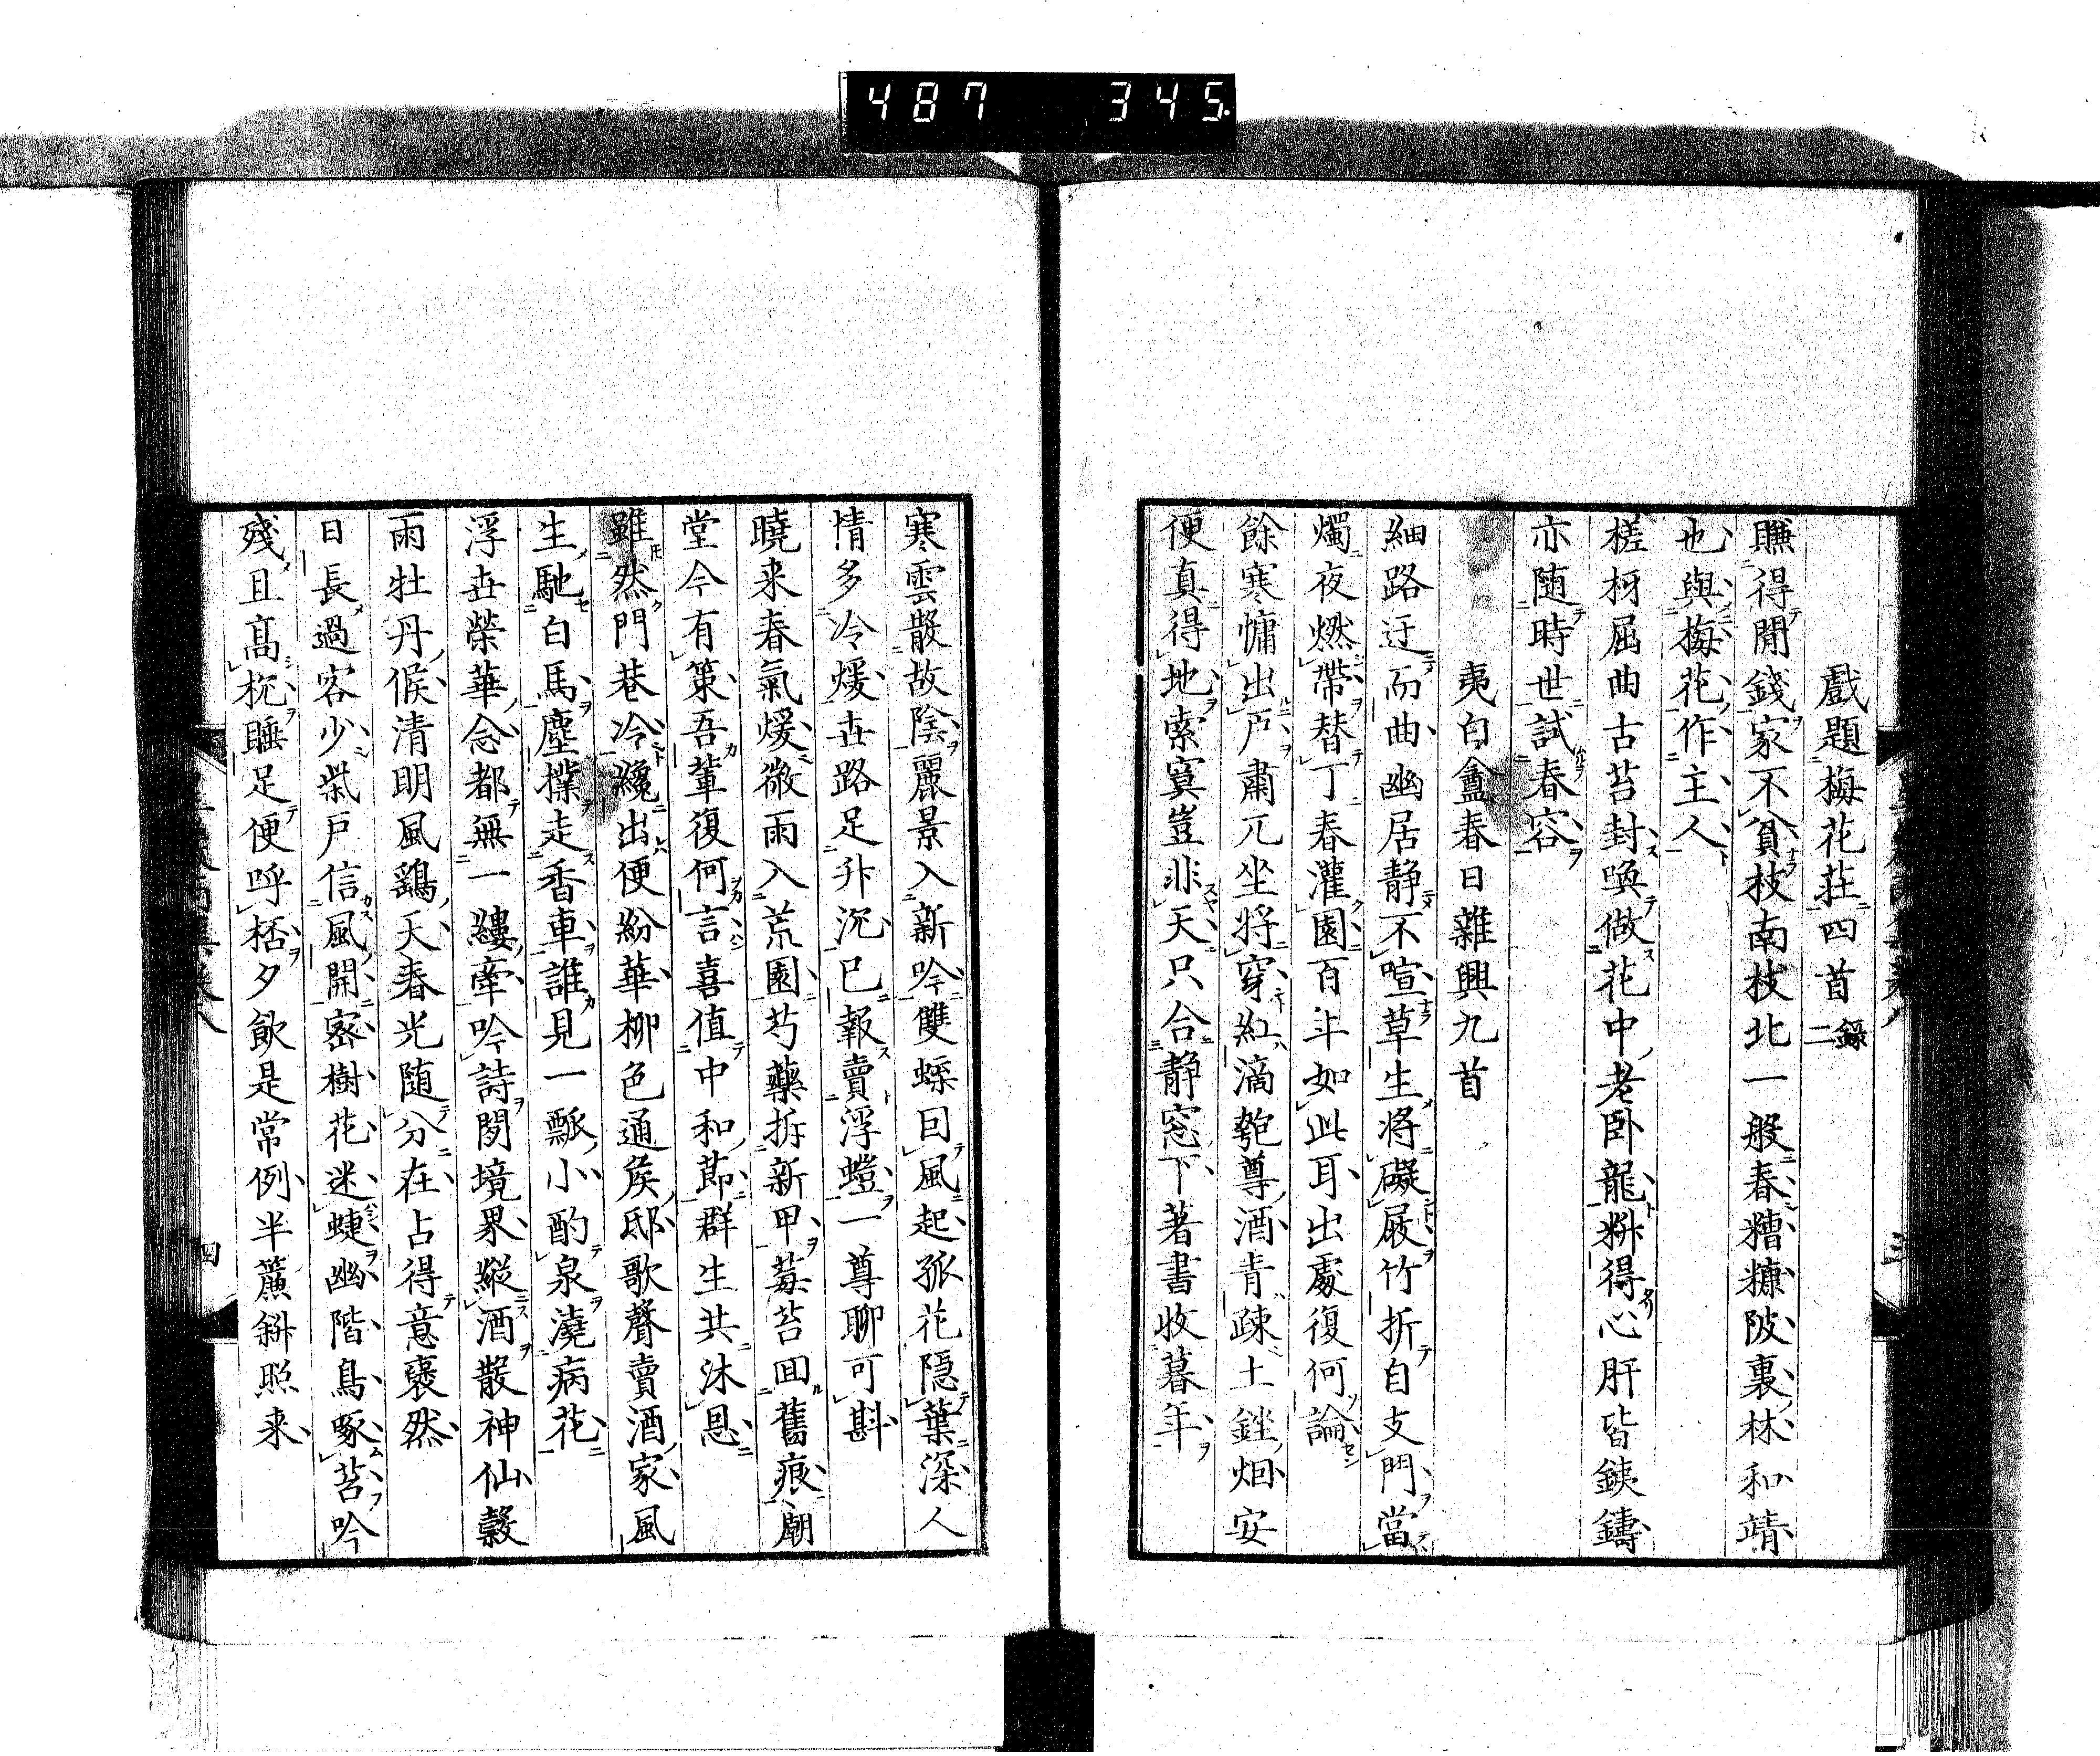 487 345
戯題梅花莊四首 録二
賺得閒錢家不貧枝南枝北一般春糟糠陂裏林和靖
也與梅花作主人
槎枒屈曲古苔封喚做花中老卧龍粰得心肝皆銕鑄
亦随時世試春容
夷白盦春日雜興九首
細路迂而曲幽居静不喧草生将礙屐竹折自支門當
燭夜燃帶替丁春灌園百年如此耳出處復何論
餘寒慵出戸肅兀坐将穿紅滴匏尊酒青疎土銼烟安
便真得地索寞豈非天只合静窓下著書收暮年
寒雲散故陰麗景入新吟雙蝶回風起孤花隠葉深人
情多冷煖世路足升沉已報賣浮螘一尊聊可斟
曉来春氣煖微雨入荒園芍藥拆新甲莓苔囬舊痕廟
堂今有策吾輩復何言喜值中和節群生共沐恩
雖然門巷冷纔出便紛華柳色通矦邸歌聲賣酒家風
生馳白馬塵撲走香車誰見一瓢小酌泉澆病花
浮世榮華念都無一縷牽吟詩閱境界縱酒散神仙縠
雨牡丹候清明風鷂天春光随分在占得意褎然
日長過客少柴戸信風開密樹花迷蜨幽階鳥啄苔吟
殘且髙枕睡足便呼桮夕飲是常例半簾斜照来
四